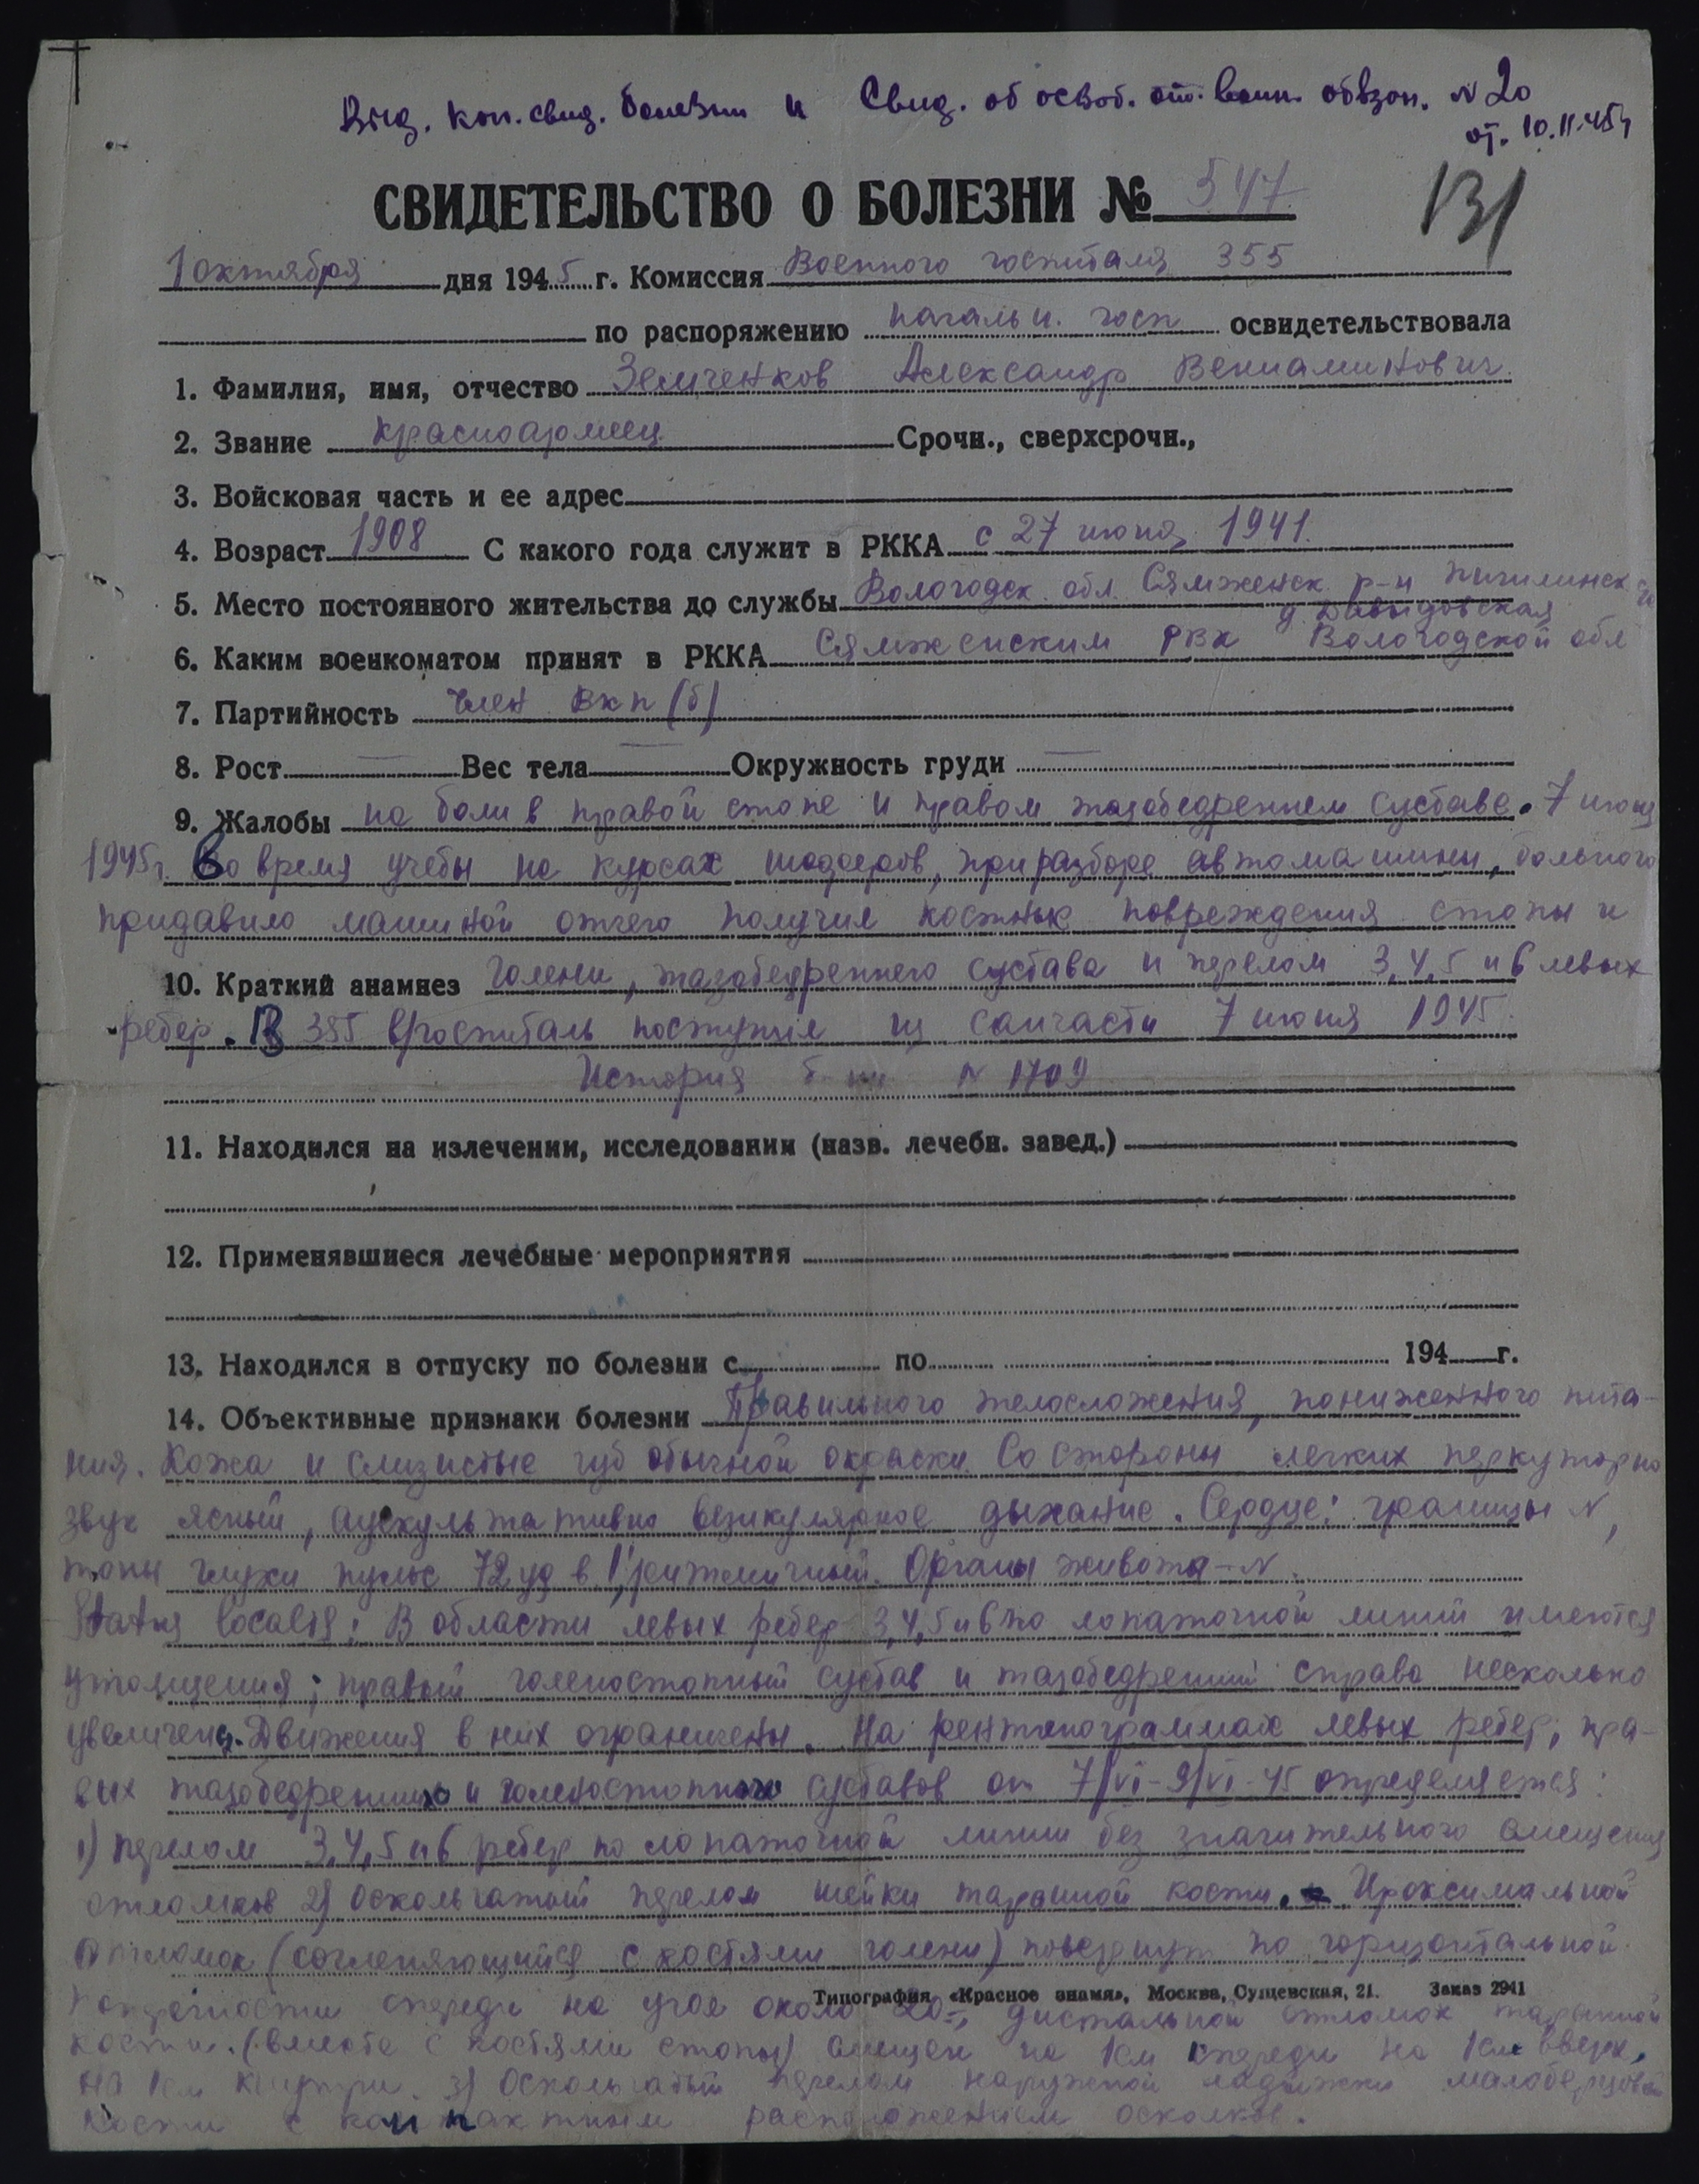 Выд. коп. свид. болезни и Свид. об освоб. от воин. обязан. N 20
от. 10.11.45г
СВИДЕТЕЛЬСТВО О БОЛЕЗНИ № 547
131
1 октября дня 1945 г. Комиссия Военного госпиталя 355
по распоряжению начальн. госп освидетельствовала
1. Фамилия, имя, отчество Земченков Александр Вениаминович.
2. Звание красноармеец Срочн., сверхсрочн.,
3. Войсковая часть и ее адрес
4. Возраст 1908 С какого года служит в РККА с 27 июня 1941.
5. Место постоянного жительства до службы Вологодск. обл. Сямженск. р-н
д. Давыдовская
6. Каким военкоматом принят в РККА Сямженским РВК Вологодской обл
7. Партийность член ВКП(б)
8. Рост — Вес тела — Окружность груди —
9. Жалобы на боли в правой стопе и правом тазобедренном суставе. 7 июня
1945г. Во время учебы на курсах шоферов, при разборе автомашины, больного
придавило машиной отчего получил костные повреждения стопы и
10. Краткий анамнез голени, тазобедренного сустава и перелом 3,4,5 и 6 левых
ребер. В 355 в/госпиталь поступил из санчасти 7 июня 1945.
История б-ни N 1709
11. Находился на излечении, исследовании (назв. лечебн. завед.)
12. Применявшиеся лечебные мероприятия
13. Находился в отпуску по болезни с по 194 г.
14. Объективные признаки болезни Правильного телосложения, пониженного пита-
ния. Кожа и слизистые губ обычной окраски. Со стороны легких перкуторно
звук ясный, аускультативно везикулярное дыхание. Сердце: границы N,
тоны глухи пульс 72 уд в 1', ритмичный. Органы живота – N.
Status localis: В области левых ребер 3,4,5 и 6 по лопаточной линии имеются
утолщения; правый голеностопный сустав и тазобедренный справа несколько
увеличены. Движения в них ограничены. На рентгенограммах левых ребер, пра-
вых тазобедренного и голеностопного суставов от 7/VI–9/VI–45 определяется:
1) перелом 3,4,5 и 6 ребер по лопаточной линии без значительного смещения
отломков 2) Оскольчатый перелом шейки таранной кости. Проксимальной
отломок (сочленяющийся с костями голени) повернут по горизонтальной
Типография «Красное знамя», Москва, Сущевская, 21. Заказ 2941
кпереди на угол около 20°, дистальной отломок таранной
кости. (вместе с костями стопы) смещен на 1см кпереди на 1см вверх,
на 1см кнутри. 3) Оскольчатый перелом наружной лодыжки малоберцовой
кости с компактным расположением осколков.